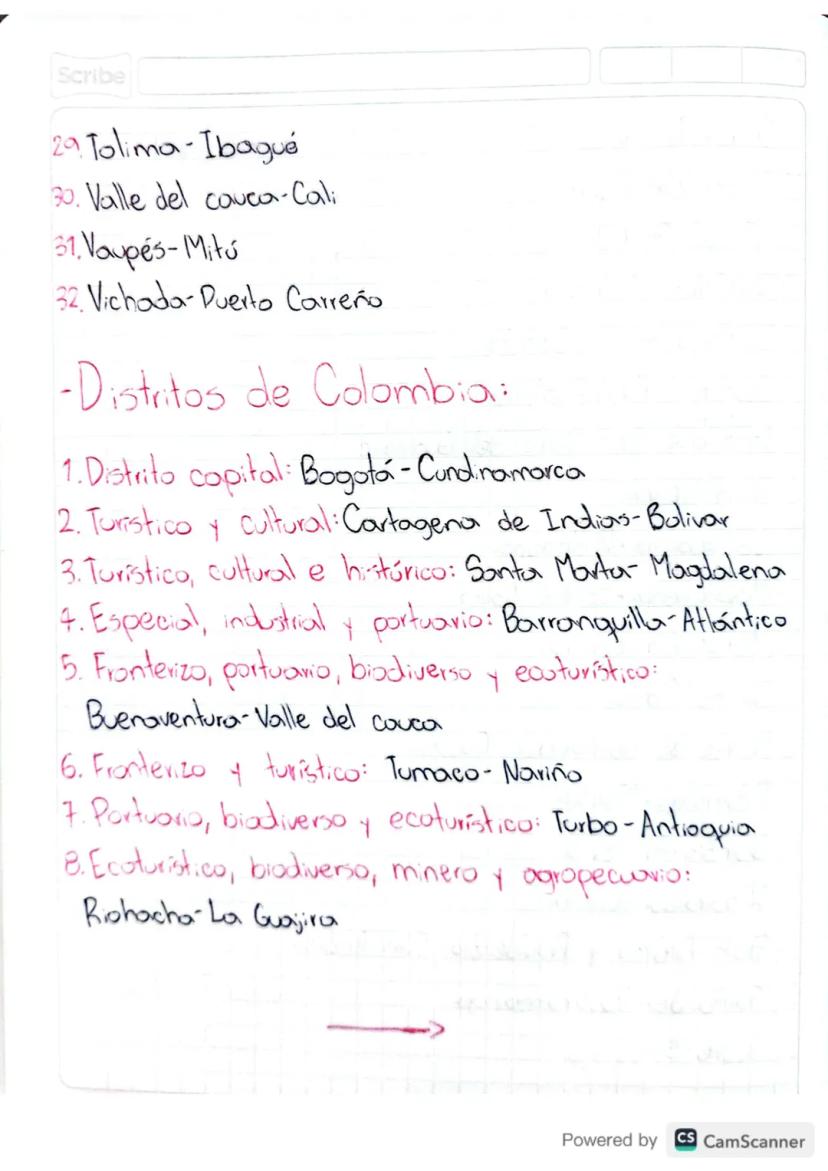 Scribe
29. Tolima-Ibagué
30. Valle del cauca-Cali
31. Vaupés-Mitú
32. Vichada-Puerto Carreño
-Distritos de Colombia:
1. Distrito capital: Bogotá-Cundinamarca
2. Turístico y cultural: Cartagena de Indias-Bolivar
3. Turístico, cultural e histórico: Santa Marta-Magdalena
4. Especial, industrial y portuario: Barranquilla-Atlántico
5. Fronterizo, portuario, biodiverso y ecoturístico:
Buenaventura-Valle del cauca
6. Fronterizo y turístico: Tumaco-Nariño
7. Portuario, biodiverso y ecoturístico: Turbo-Antioquia
8. Ecoturístico, biodiverso, minero y agropecuario:
Riohacha-La Guajira
Powered by CS CamScanner